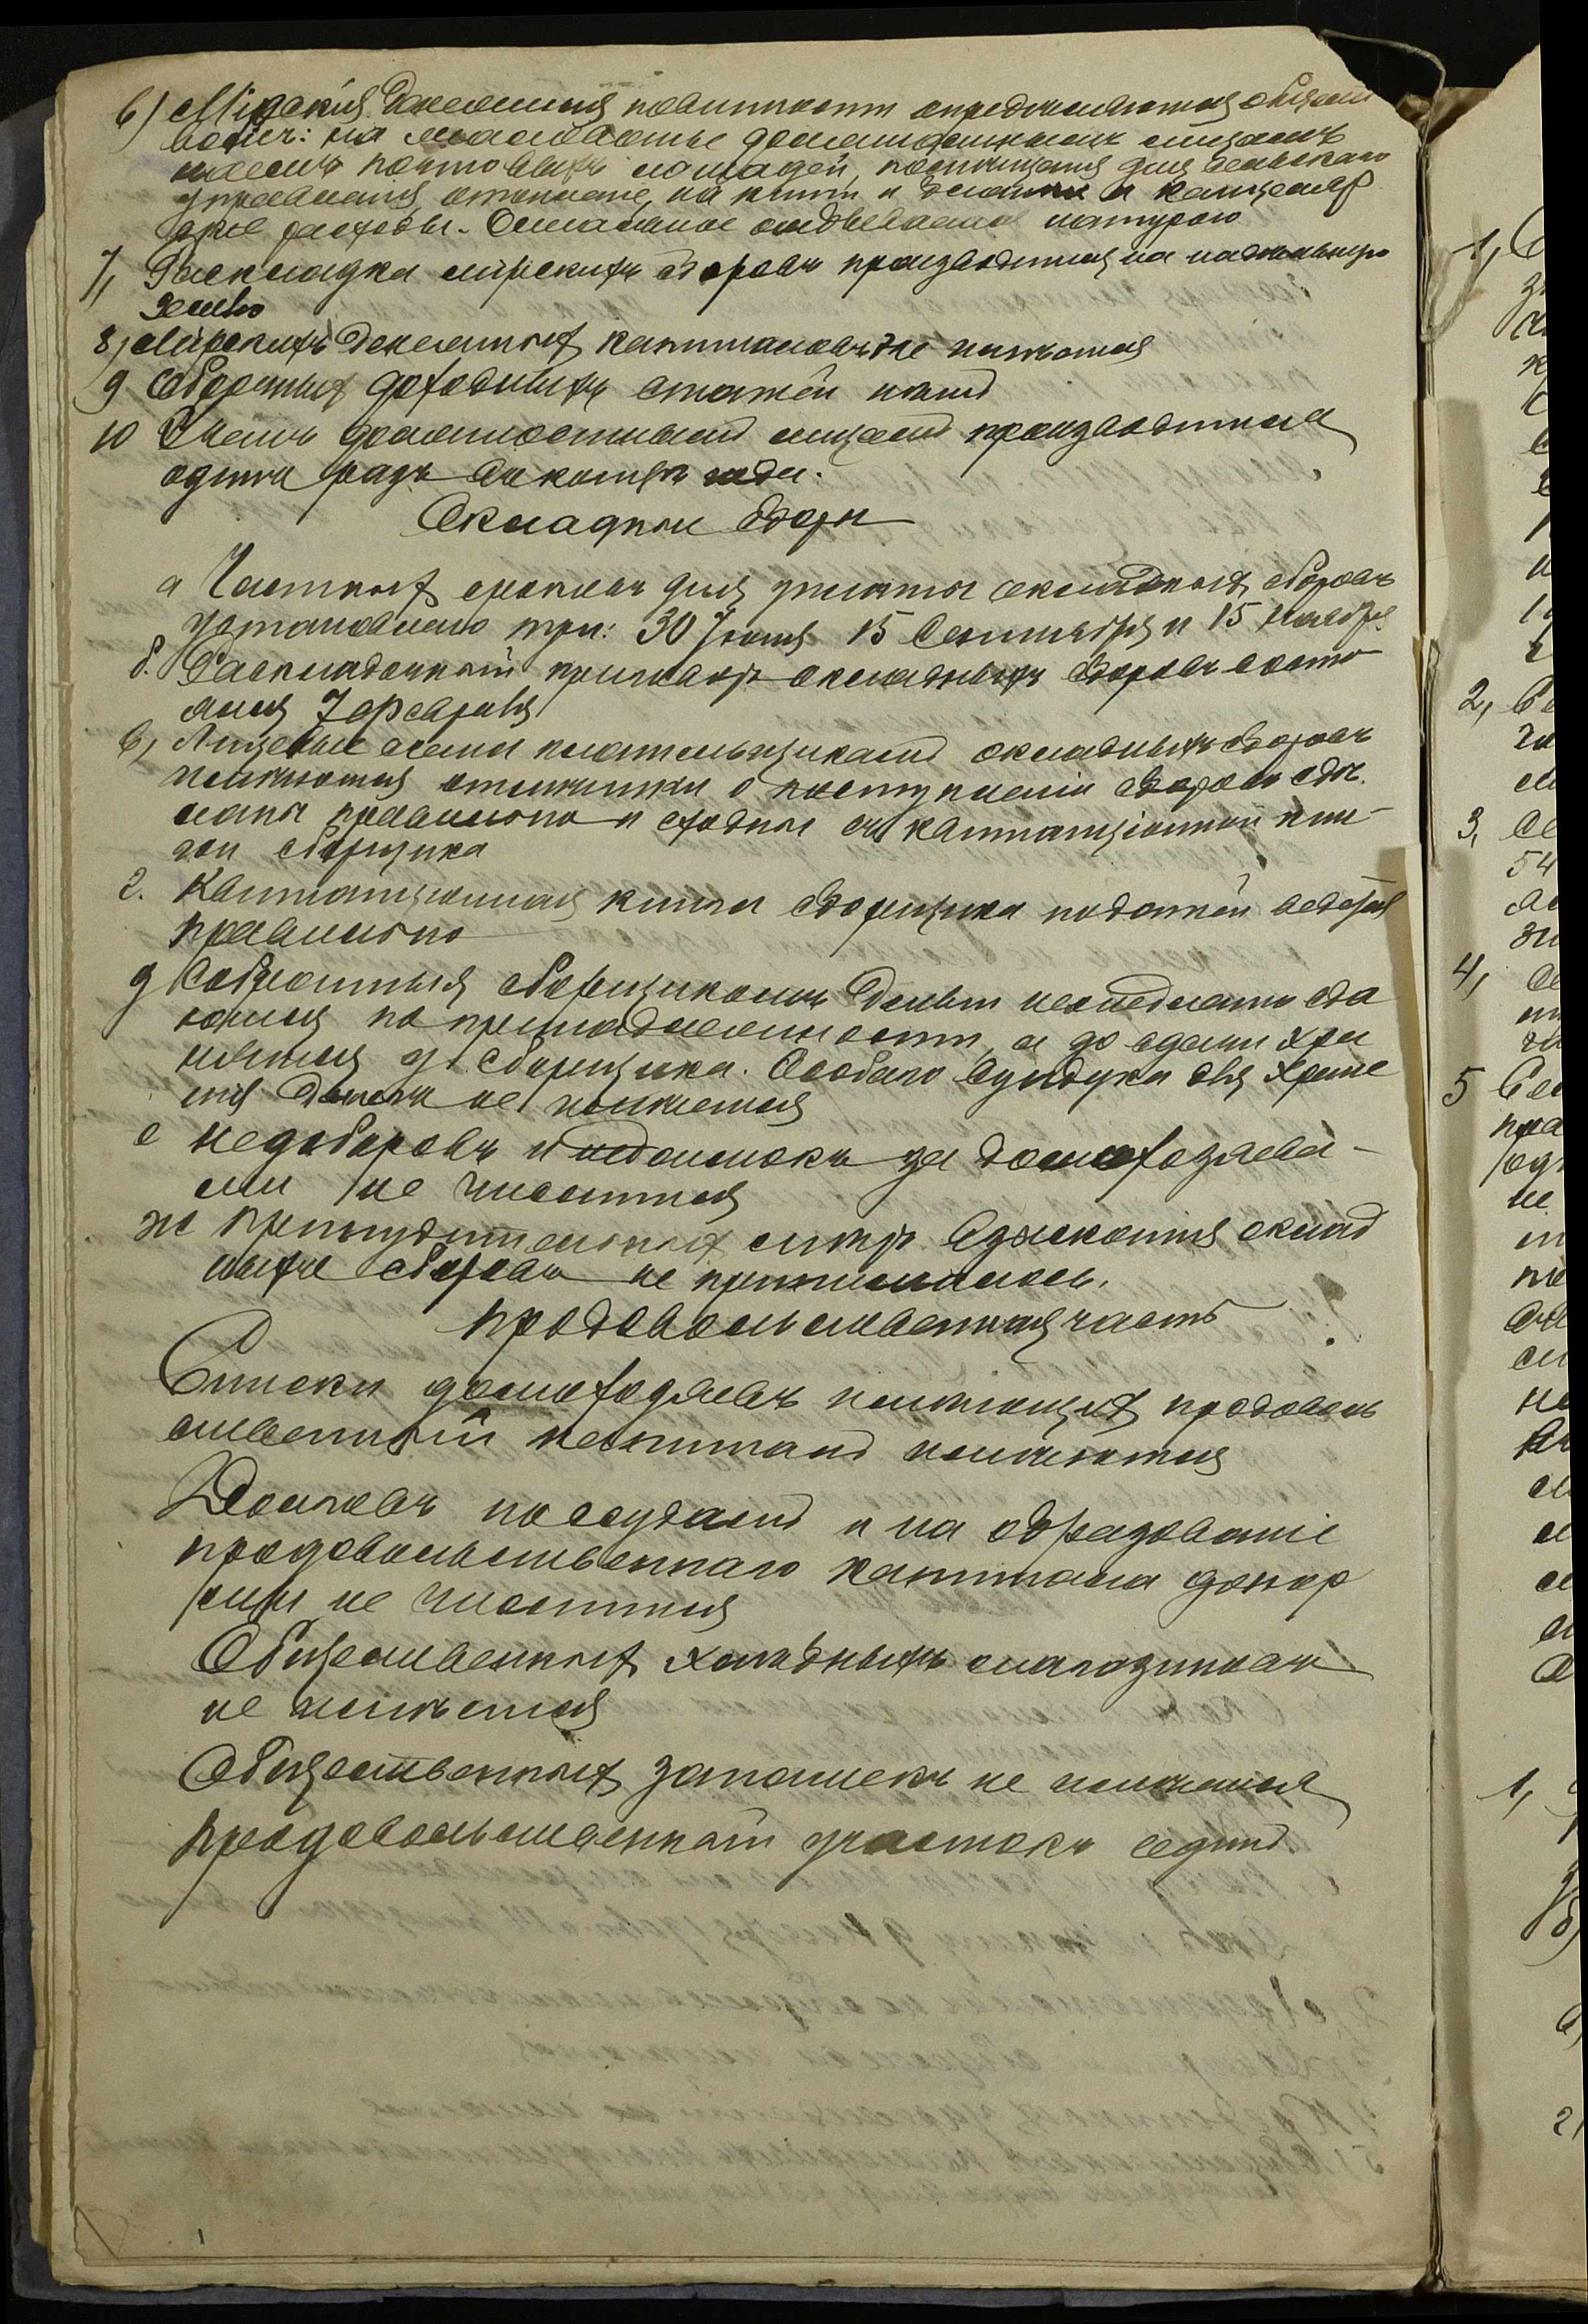 6) Мірскія денежныя повинности определяются обществомъ
вомъ: на жалованье должностнымъ лицамъ
наемъ почтовыхъ лошадей, помещения для сельскаго
управления, отопление, на книги и бланки и канцеляр
ские расходы. Остальное отбывается натурою
7, Раскладка мірскихъ сборовъ производится на надельную
землю
8, Мірскихъ денежныхъ капиталовъ не имеется
9 Оброчныхъ доходныхъ статей нетъ
10 Учетъ должностнымъ лицамъ производится
одинъ разъ въ конце года.
Окладные сборы
а Частныхъ сроковъ для уплаты окладныхъ сборовъ
установлено три: 30 Июня 15 Сентября и 15 Ноября
б. Раскладочный приговоръ окладныхъ сборовъ состо
ялся 7 февраля
в, Лицевые счета плательщикамъ окладныхъ сборовъ
имеются отметки о поступлении сборовъ сде
ланы правильно и сходны съ квитанціонной кни-
гой сборщика
г. Квитанционная книга сборщика податей ведется
правильно
д Собранныя сборщикомъ деньги немедленно сда
ются по принадлежности, а до сдачи хра
нятся у сборщика. Особаго сундука для хране
ния денегъ не имеется
е Недоборовъ и недоимокъ за домохозяева-
ми не числится
ж Принудительныхъ меръ взыскания оклад
ныхъ сборовъ не принималось.
Продовольственная часть
Списки домохозяевъ имеющихъ продоволь
ственный капиталъ имеются
Долговъ по ссудамъ и на образованіе
продовольственнаго капитала
не числится
Общественныхъ хлебныхъ магазиновъ
не имеется
Общественныхъ запашекъ не имеется
Продовольственный участокъ единъ